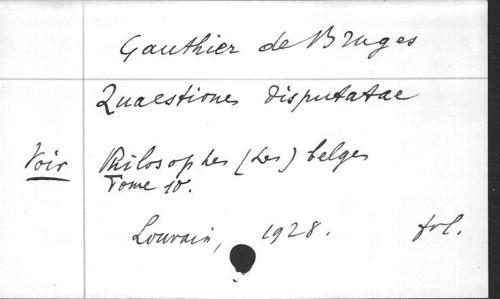 Gauthier de Bruges
Quaestiones disputatae
Voir Philosophes (Les) belges
Tome 10.
Louvain, 1928. fol.